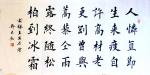 人憐直節
生來瘦自
許高材老
更剛曾與
蒿藜同雨
露終隨松
柏到冰霜